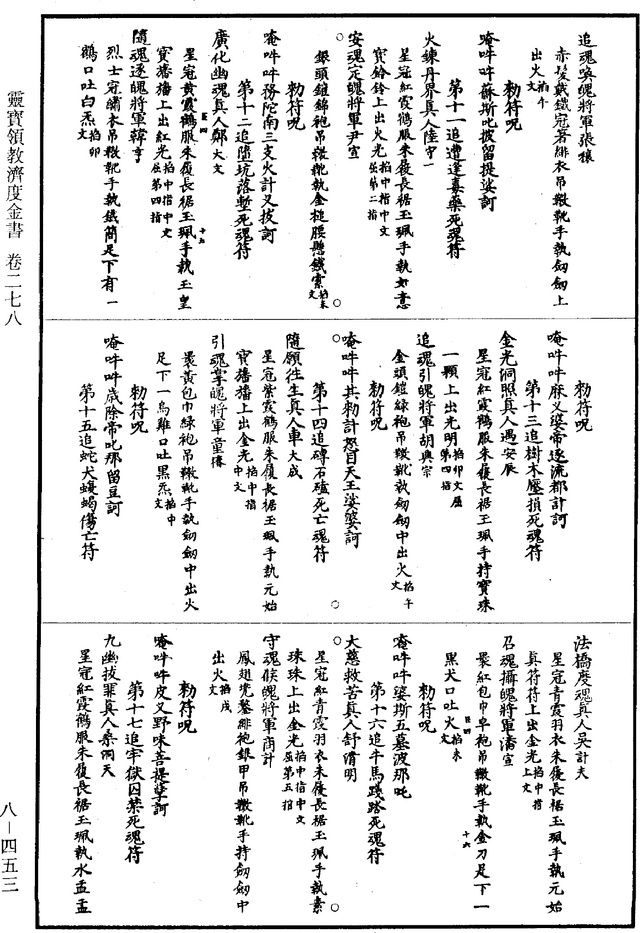 追魂喚魄將軍張穰
赤髮戴鐵冠著緋衣吊䩺靴手執劍劍上
出火掐午文
勑符呪
唵吽吽蘇斯叱披留提娑訶
第十一追遭逢毒藥死魂符
火鍊丹界真人陸守一
星冠紅霞鶴服朱履長裾玉珮手執如意
寶鈴鈴上出火光掐中指中文屈第二指
安魂定魄將軍尹宣
銀頭鎧錦袍吊䩺靴執金槌腰懸鐵索掐未文
勑符呪
唵吽吽務陀南三支火計叉披訶
第十二追墮坑落塹死魂符
廣化幽魂真人鄭大文
星冠黃霞鶴服朱履長裾玉珮手執玉皇
寶旛旛上出紅光掐中指中文屈第四指
隨魂逐魄將軍韓亨
烈士冠繡衣吊䩺靴手執鐵簡足下有一
鶴口吐白炁掐卯文
勑符呪
唵吽吽麻义婆帝逐流都計訶
第十三追樹木壓損死魂符
金光洞照真人遇安辰
星冠紅霞鶴服朱履長裾玉珮手持寶珠
一顆上出光明掐卯文屈第四指
追魂引魄將軍胡興宗
金頭鎧綠袍吊䩺靴執劍劍中出火掐午文
勑符呪
唵吽吽其勑計怒目天王娑婆訶
第十四追磚石磕死亡魂符
隨願往生真人車大成
星冠紫霞鶴服朱履長裾玉珮手執元始
寶旛旛上出金光掐中指中文
引魂掌魄將軍童俻
裹黃包巾綠袍吊䩺靴手執劍劍中出火
足下一烏雞口吐黑炁掐中文
勑符呪
唵吽吽歲除帝叱那留豆訶
第十五追蛇犬蠍傷亡符
法橋度魂真人吳計夫
星冠青霞羽衣朱履長裾玉珮手執元始
真符符上出金光掐中指上文
召魂攝魄將軍潘宣
裹紅包巾皁袍吊䩺靴手執金刀足下一
黑犬口吐火掐未文
勑符呪
唵吽吽婆斯五墓波那吒
第十六追牛馬踐踏死魂符
大慈救苦真人舒清明
星冠紅青霞羽衣朱履長裾玉珮手執素
珠珠上出金光掐中指中文屈第五指
守魂候魄將軍商計
鳳翅兜鍪緋袍銀甲吊䩺靴手持劍劍中
出火掐戌文
勑符呪
唵吽吽皮义野味菩提孽訶
第十七追牢獄囚禁死魂符
九幽拔罪真人桑洞天
星冠紅霞鶴服朱履長裾玉珮執水盂盂
靈寶領教濟度金書 卷二七八
八－四五三